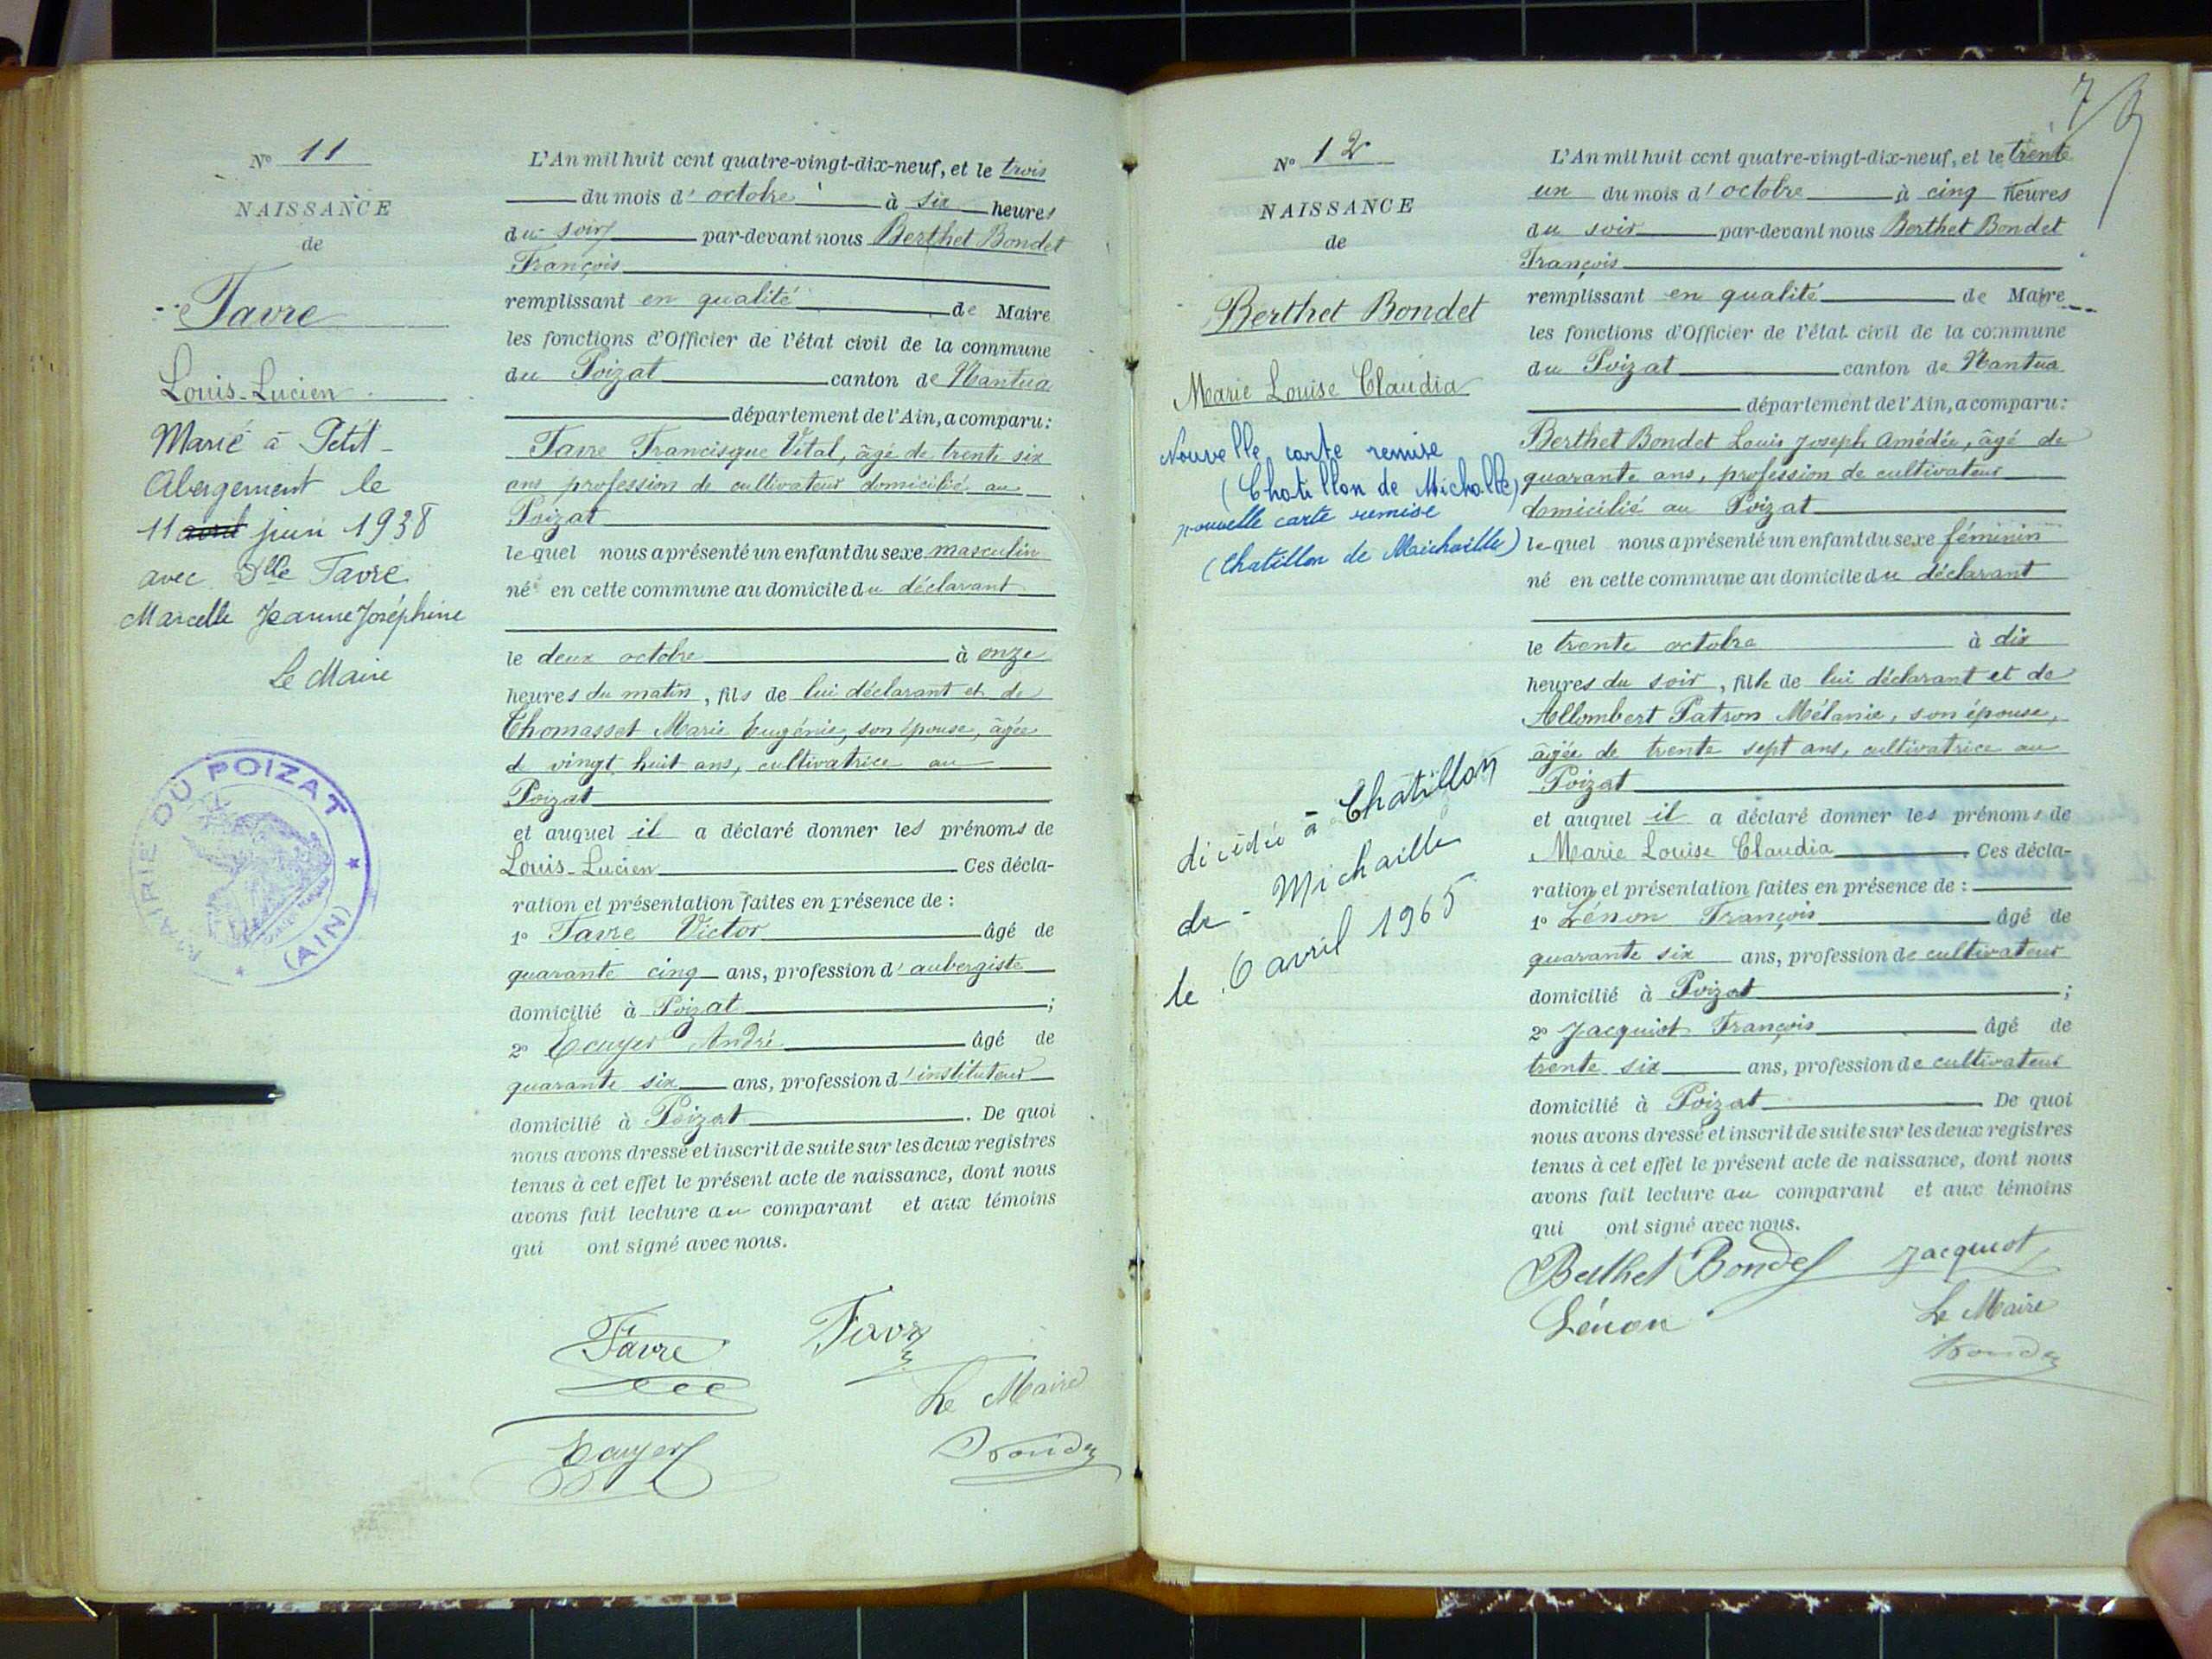 N° 11
NAISSANCE
de
Favre
Louis-Lucien
Marié à Petit-
Abergement le
11 avril juin 1938
avec Dlle Favre
Marcelle Jeanne Joséphine
Le Maire
MAIRIE DU POIZAT
(AIN)
L'An mil huit cent quatre-vingt-dix-neuf, et le trois
du mois d'octobre à six heures
du soir par-devant nous Berthet Bondet
François
remplissant en qualité de Maire
les fonctions d'Officier de l'état civil de la commune
du Poizat canton de Nantua
département de l'Ain, a comparu:
Favre Francisque Vital, âgé de trente six
ans profession de cultivateur domicilié au
Poizat
lequel nous a présenté un enfant du sexe masculin
né en cette commune au domicile du déclarant
le deux octobre à onze
heures du matin, fils de lui déclarant et de
Thomasset Marie Eugénie, son épouse, âgée
de vingt huit ans, cultivatrice au
Poizat
et auquel il a déclaré donner les prénoms de
Louis-Lucien Ces décla-
ration et présentation faites en présence de :
1° Favre Victor âgé de
quarante cinq ans, profession d'aubergiste
domicilié à Poizat ;
2° Ecuyer André âgé de
quarante six ans, profession d'instituteur
domicilié à Poizat . De quoi
nous avons dressé et inscrit de suite sur les deux registres
tenus à cet effet le présent acte de naissance, dont nous
avons fait lecture au comparant et aux témoins
qui ont signé avec nous.
Favre Favre
Le Maire
Ecuyer Bondet
7
N° 12
NAISSANCE
de
Berthet Bondet
Marie Louise Claudia
Nouvelle carte remise
(Chatillon de Michaille)
nouvelle carte remise
(Chatillon de Michaille)
décédée à Chatillon
de - Michaille
le 6 avril 1965
L'An mil huit cent quatre-vingt-dix-neuf, et le trente
un du mois d'octobre à cinq heures
du soir par-devant nous Berthet Bondet
François
remplissant en qualité de Maire
les fonctions d'Officier de l'état civil de la commune
du Poizat canton de Nantua
département de l'Ain, a comparu:
Berthet Bondet Louis Joseph Amédée, âgé de
quarante ans, profession de cultivateur
domicilié au Poizat
lequel nous a présenté un enfant du sexe féminin
né en cette commune au domicile du déclarant
le trente octobre à dix
heures du soir, fille de lui déclarant et de
Allombert Patron Mélanie, son épouse,
âgée de trente sept ans, cultivatrice au
Poizat
et auquel il a déclaré donner les prénoms de
Marie Louise Claudia . Ces décla-
ration et présentation faites en présence de :
1° Lénon François âgé de
quarante six ans, profession de cultivateur
domicilié à Poizat ;
2° Jacquiot François âgé de
trente six ans, profession de cultivateur
domicilié à Poizat De quoi
nous avons dressé et inscrit de suite sur les deux registres
tenus à cet effet le présent acte de naissance, dont nous
avons fait lecture au comparant et aux témoins
qui ont signé avec nous.
Berthet Bondet Jacquiot
Lénon Le Maire
Bondet